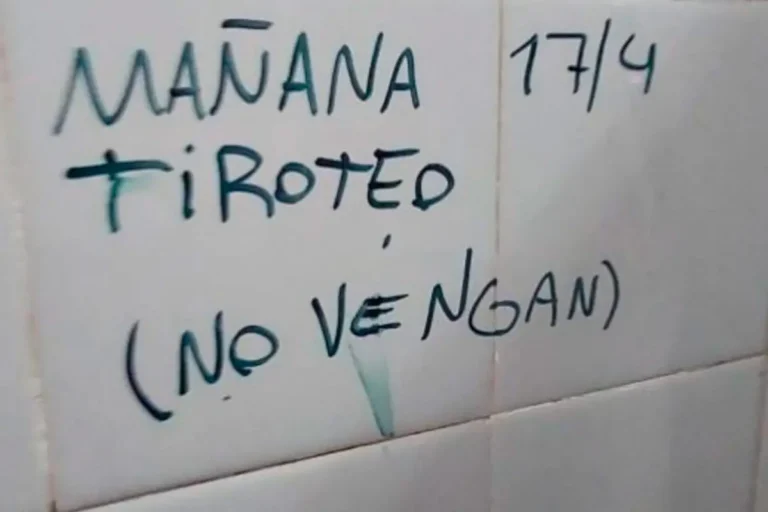 MAÑANA 17/4
TiROTEO
(NO VENGAN)